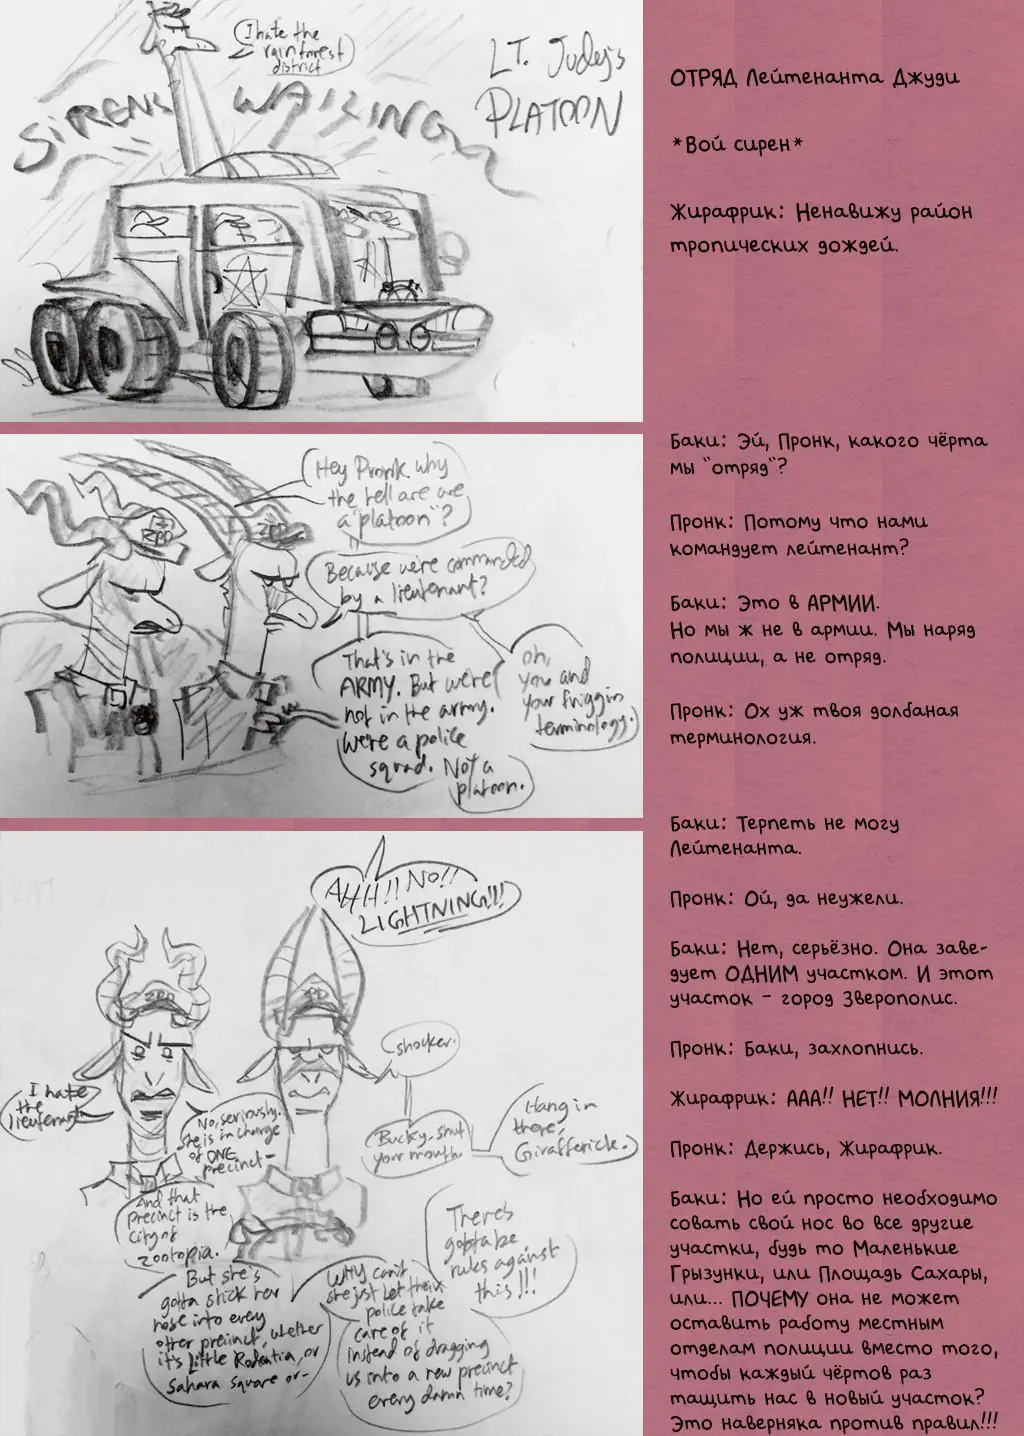 I hate the
rainforest
district
LT. Judy's
PLATOON
SIRENS WAILING
Hey Pronk, why
the hell are we
a "platoon"?
Because we're commanded
by a lieutenant?
That's in the
ARMY. But we're
not in the army.
We're a police
squad. Not a
platoon.
oh,
you and
your friggin
terminology.
ZPD
ZPD
AHH!! NO!!
LIGHTNING!!!
ZPD
I hate
the
lieutenant
shocker.
No, seriously.
she is in charge
of ONE
precinct-
Bucky, shut
your mouth.
Hang in
there,
Girafferick.
And that
precinct is the
city of
zootopia.
But she's
gotta stick her
nose into every
other precinct, whether
it's Little Rodentia, or
Sahara Square or-
Why can't
she just let their
police take
care of it
instead of dragging
us into a new precinct
every damn time?
There's
gotta be
rules against
this!!!
ОТРЯД Лейтенанта Джуди
*Вой сирен*
Жирафрик: Ненавижу район
тропических дождей.
Баки: Эй, Пронк, какого чёрта
мы "отряд"?
Пронк: Потому что нами
командует лейтенант?
Баки: Это в АРМИИ.
Но мы ж не в армии. Мы наряд
полиции, а не отряд.
Пронк: Ох уж твоя долбаная
терминология.
Баки: Терпеть не могу
Лейтенанта.
Пронк: Ой, да неужели.
Баки: Нет, серьёзно. Она заве-
дует ОДНИМ участком. И этот
участок - город Зверополис.
Пронк: Баки, захлопнись.
Жирафрик: ААА!! НЕТ!! МОЛНИЯ!!!
Пронк: Держись, Жирафрик.
Баки: Но ей просто необходимо
совать свой нос во все другие
участки, будь то Маленькие
Грызунки, или Площадь Сахары,
или... ПОЧЕМУ она не может
оставить работу местным
отделам полиции вместо того,
чтобы каждый чёртов раз
тащить нас в новый участок?
Это наверняка против правил!!!